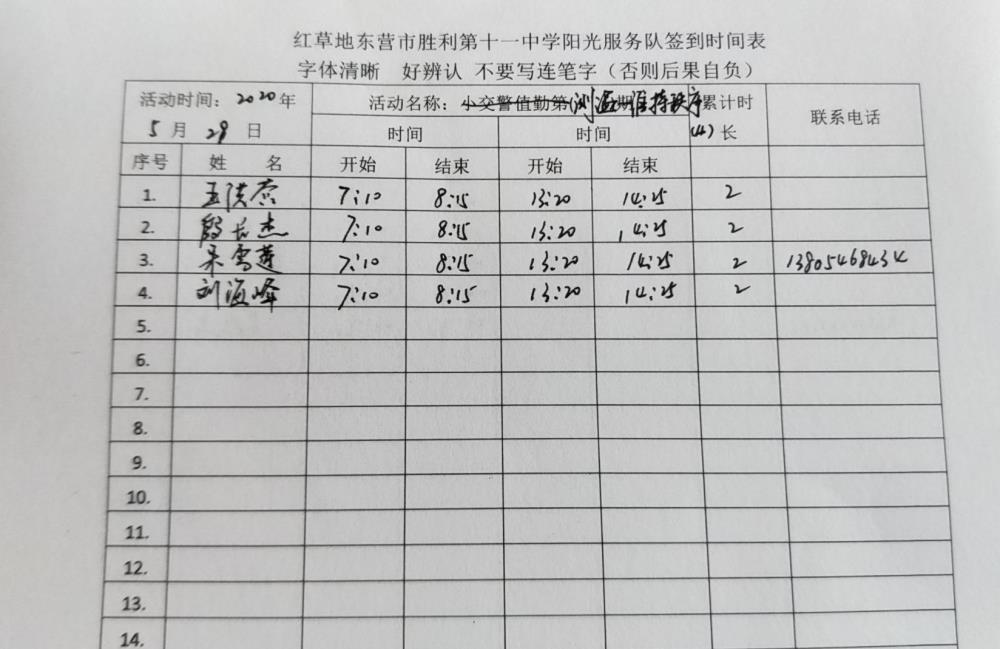 红草地东营市胜利第十一中学阳光服务队签到时间表
字体清晰 好辨认 不要写连笔字（否则后果自负）
活动时间：2020年 5月29日
活动名称：小交警值勤第(测温 期 维持秩序
累计时(4)长
联系电话
时间 时间
序号 姓 名 开始 结束 开始 结束
1. 王洪杰 7:10 8:15 13:20 14:25 2
2. 长杰 7:10 8:15 13:20 14:25 2
3. 朱雪莲 7:10 8:15 13:20 14:25 2 13805468434
4. 刘海峰 7:10 8:15 13:20 14:25 2
5.
6.
7.
8.
9.
10.
11.
12.
13.
14.